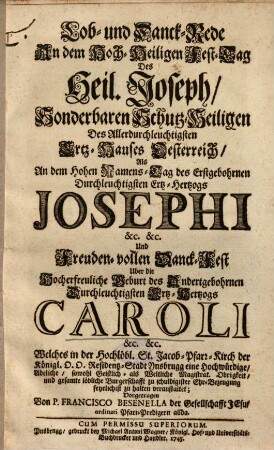 Lob- und Danck-Rede
An dem Hoch-Heiligen Fest-Tag
Des
Heil. Joseph/
Sonderbaren Schutz-Heiligen
Des Allerdurchleuchtigsten
Ertz-Hauses Oesterreich/
Als
An dem Hohen Namens-Tag des Erstgebohrnen
Durchleuchtigsten Ertz-Hertzogs
JOSEPHI
&c. &c.
Und
Freuden-vollen Danck-Fest
Uber die
Hocherfreuliche Geburt des Andertgebohrnen
Durchleuchtigsten Ertz-Hertzogs
CAROLI
&c. &c.
Welches in der Hochlöbl. St. Jacob-Pfarr-Kirch der
Königl. O. O. Residentz-Stadt Ynsbrugg eine Hochwürdige/
Adeliche/ sowohl Geistlich- als Weltliche Magistrat. Obrigkeit/
und gesamte löbliche Burgerschafft zu schuldigster Ehr-Bezeugung
feyrlichst zu halten veranstaltet;
Vorgetragen
Von P. FRANCISCO BESENELLA der Gesellschafft JEsu/
ordinari Pfarr-Predigern allda.
CUM PERMISSU SUPERIORUM.
Ynsbrugg/ gedruckt bey Michael Antoni Wagner/ Königl. Hof- und Universitäts-
Buchdrucker und Handler. 1745.